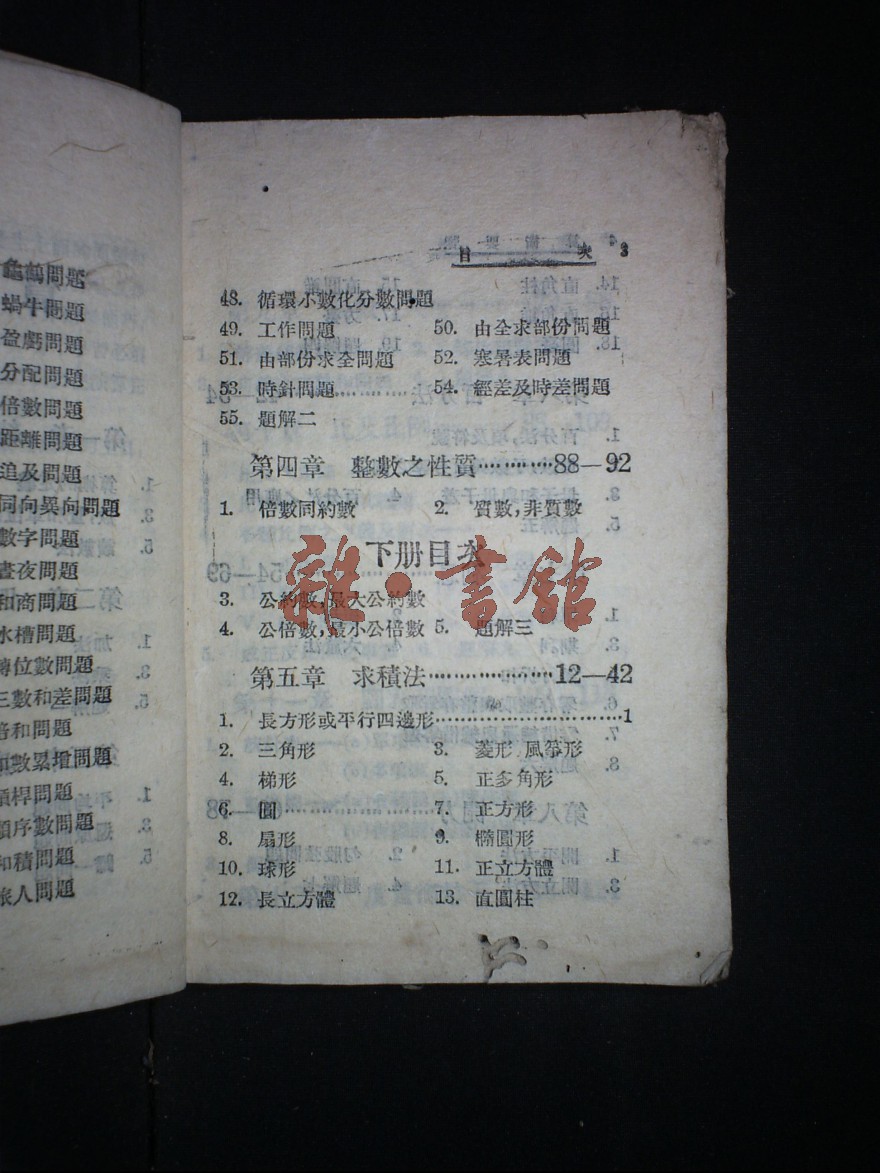 目 次 3
48. 循環小數化分數問題
49. 工作問題 50. 由全求部份問題
51. 由部份求全問題 52. 寒暑表問題
53. 時針問題 54. 經差及時差問題
55. 題解二
第四章 整數之性質············88—92
1. 倍數同約數 2. 質數,非質數
下册目次
雜·書館
3. 公約數,最大公約數
4. 公倍數,最小公倍數 5. 題解三
第五章 求積法··················12—42
1. 長方形或平行四邊形······························1
2. 三角形 3. 菱形,風箏形
4. 梯形 5. 正多角形
6. 圓 7. 正方形
8. 扇形 9. 橢圓形
10. 球形 11. 正立方體
12. 長立方體 13. 直圓柱
龜鶴問題
蝸牛問題
盈虧問題
分配問題
倍數問題
距離問題
追及問題
同向異向問題
數字問題
晝夜問題
和商問題
水槽問題
轉位數問題
三數和差問題
倍和問題
數累增問題
桿問題
順序數問題
和積問題
旅人問題